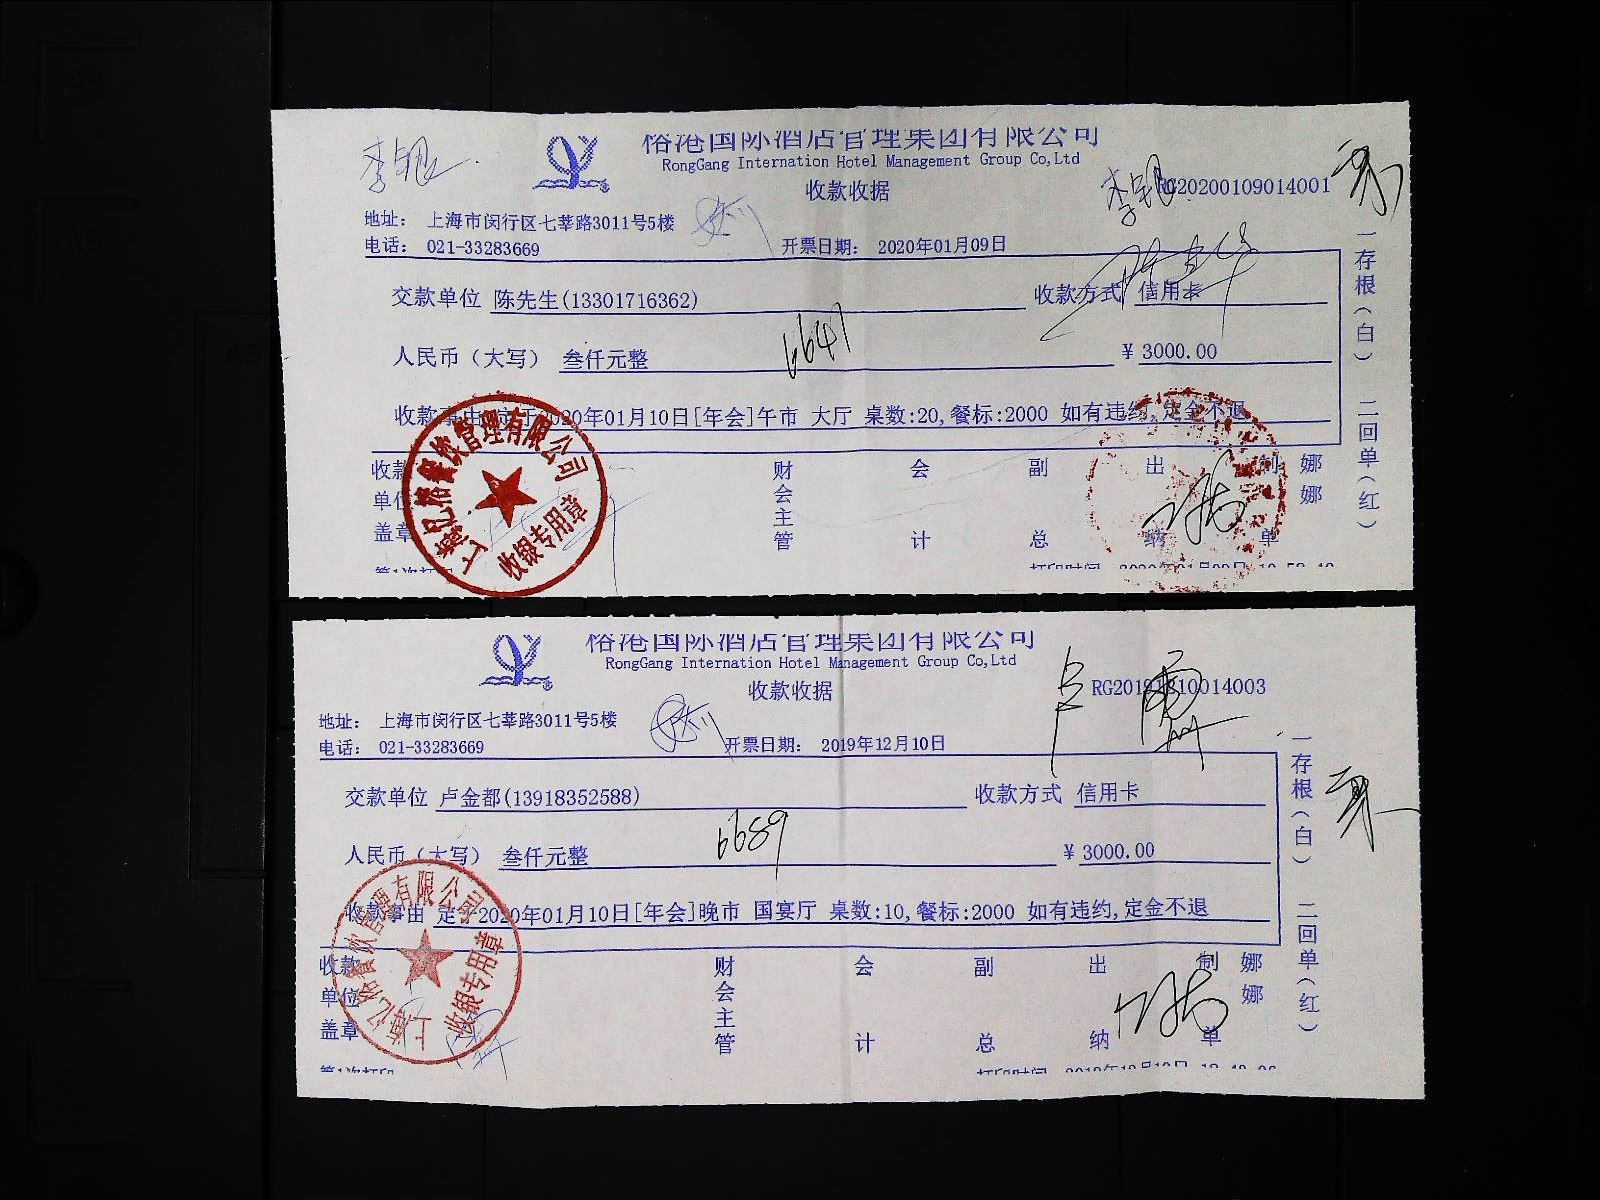 榕港国际酒店管理集团有限公司
RongGang Internation Hotel Management Group Co,Ltd
收款收据
李银
李银
RG20200109014001
地址： 上海市闵行区七莘路3011号5楼
电话： 021-33283669
开票日期： 2020年01月09日
交款单位 陈先生(13301716362)
收款方式 信用卡
人民币（大写） 叁仟元整
6647
¥ 3000.00
收款事由 定于2020年01月10日[年会]午市 大厅 桌数:20,餐标:2000 如有违约,定金不退
收款单位盖章
财会主管
会计
副总
出纳
制单
娜娜
一存根（白） 二回单（红）
上海亿榕餐饮管理有限公司
收银专用章
第1次打印
打印时间 2020年01月09日
榕港国际酒店管理集团有限公司
RongGang Internation Hotel Management Group Co,Ltd
收款收据
RG20191210014003
地址： 上海市闵行区七莘路3011号5楼
电话： 021-33283669
开票日期： 2019年12月10日
交款单位 卢金都(13918352588)
收款方式 信用卡
人民币（大写） 叁仟元整
6689
¥ 3000.00
收款事由 定于2020年01月10日[年会]晚市 国宴厅 桌数:10,餐标:2000 如有违约,定金不退
收款单位盖章
财会主管
会计
副总
出纳
制单
娜娜
一存根（白） 二回单（红）
上海亿榕餐饮管理有限公司
收银专用章
第1次打印
打印时间 2019年12月10日